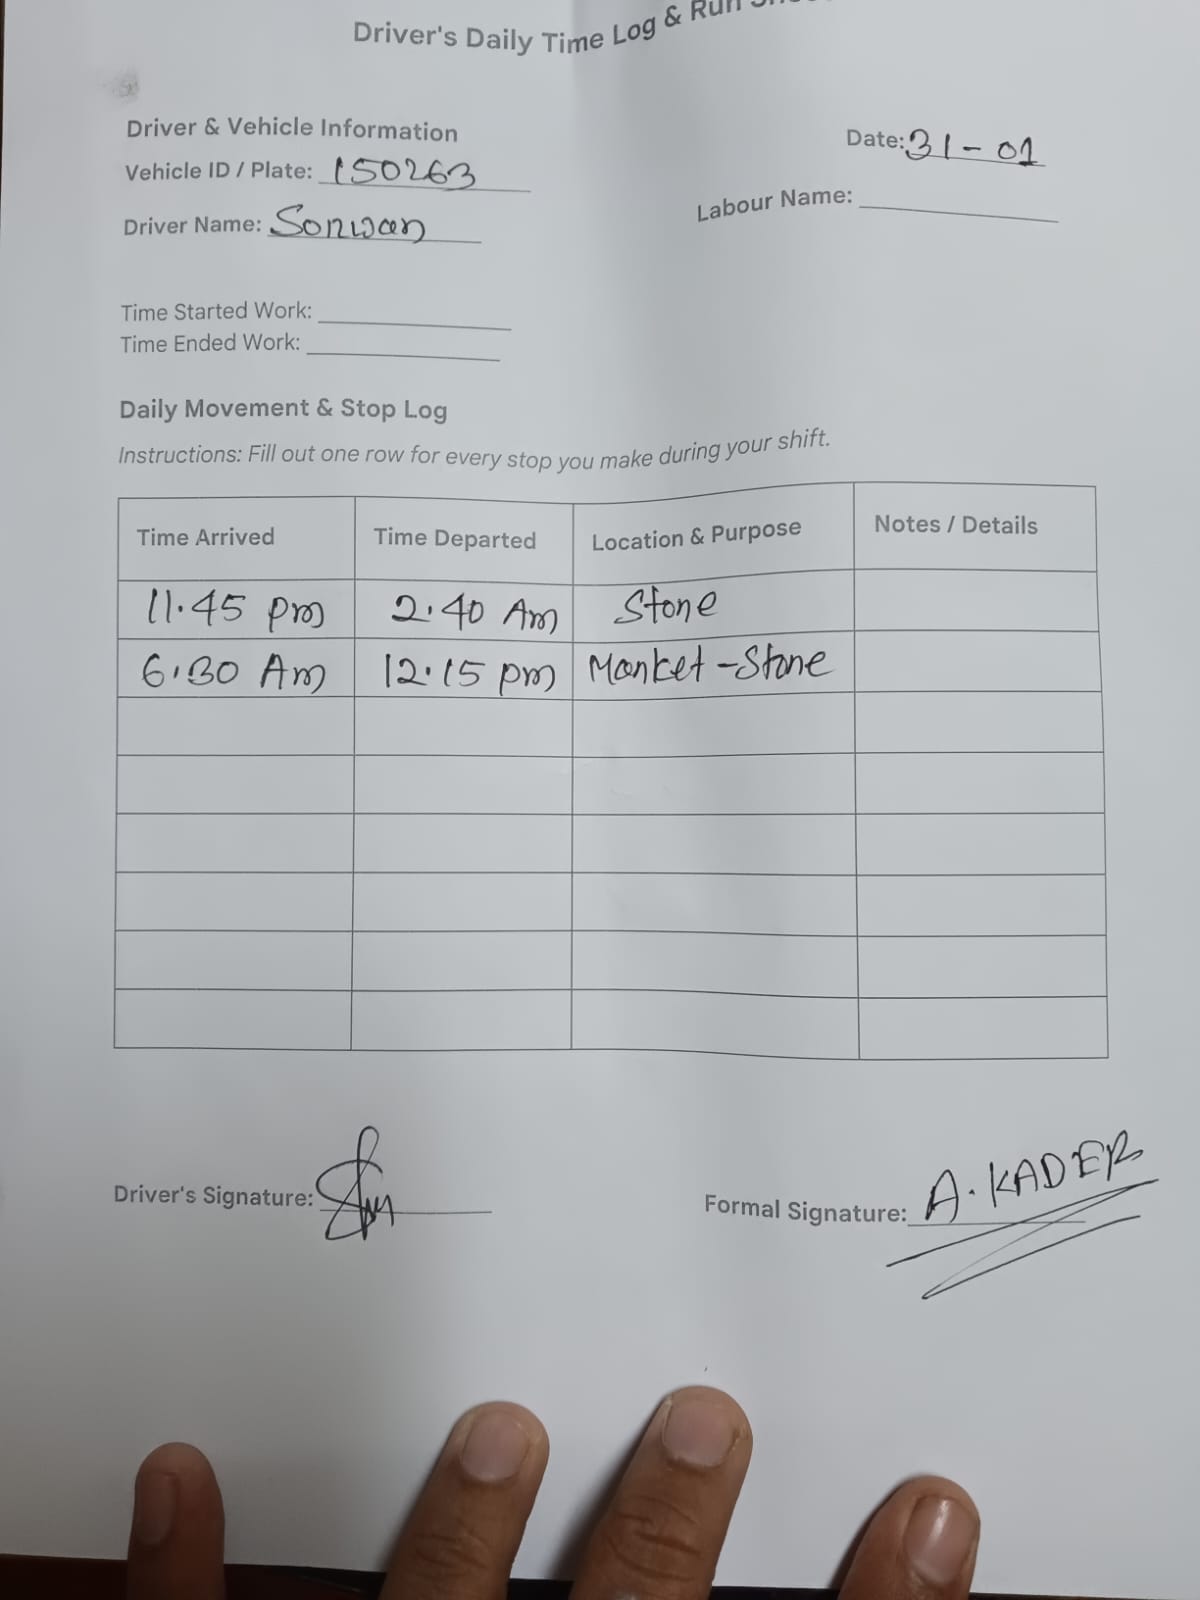 Driver's Daily Time Log & Run
Driver & Vehicle Information
Date: 31-01
Vehicle ID / Plate: 150263
Labour Name:
Driver Name: Sorwar
Time Started Work:
Time Ended Work:
Daily Movement & Stop Log
Instructions: Fill out one row for every stop you make during your shift.
Time Arrived Time Departed Location & Purpose Notes / Details
11.45 pm 2.40 Am Stone
6.30 Am 12.15 pm Market-Stone
Driver's Signature:
Formal Signature: A. KADER